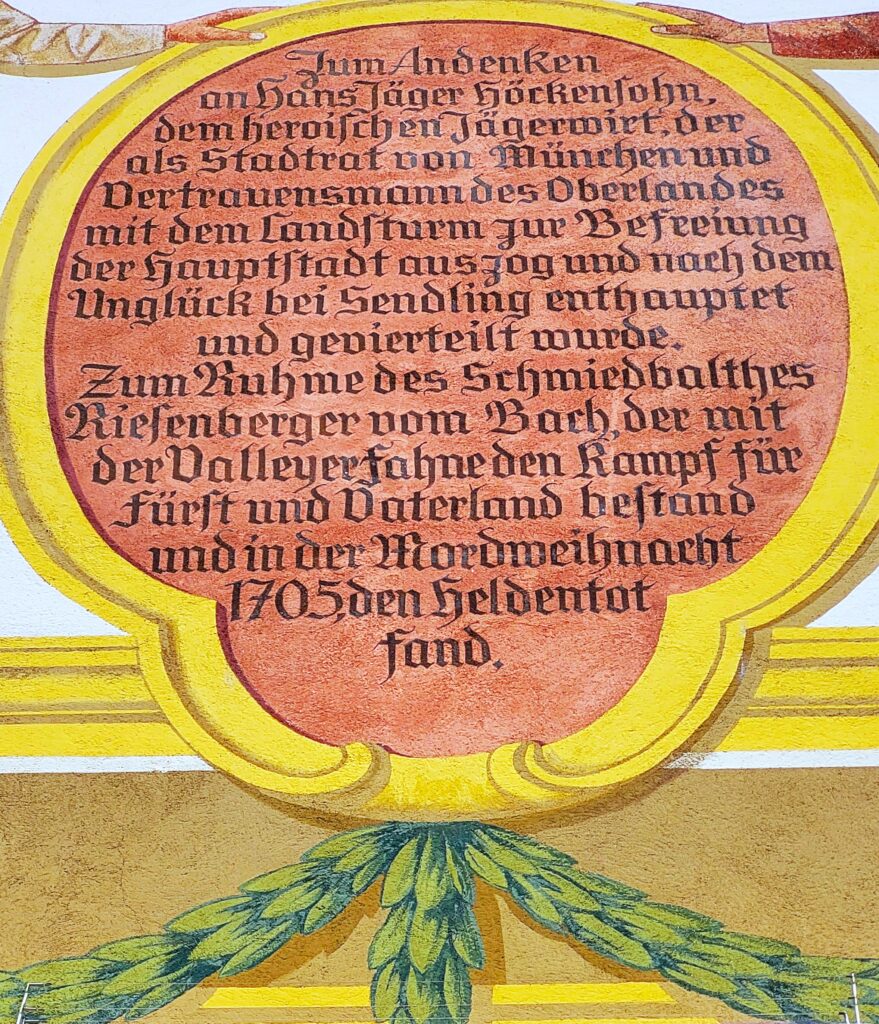 Zum Andenken
an Hans Jäger Höckensohn,
dem heroischen Jägerwirt, der
als Stadtrat von München und
Vertrauensmann des Oberlandes
mit dem Landsturm zur Befreiung
der Hauptstadt auszog und nach dem
Unglück bei Sendling enthauptet
und gevierteilt wurde.
Zum Ruhme des Schmiedbalthes
Riesenberger vom Bach, der mit
der Valleyerfahne den Kampf für
Fürst und Vaterland bestand
und in der Mordweihnacht
1705, den Heldentot
fand.